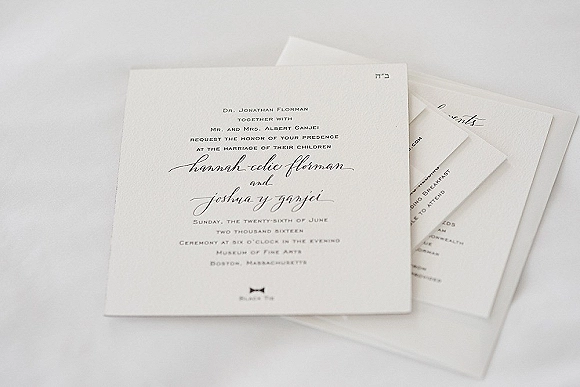 ב״ה
Dr. Jonathan Florman
together with
Mr. and Mrs. Albert Ganjei
request the honor of your presence
at the marriage of their children
hannah edie florman
and
joshua y ganjei
Sunday, the twenty-sixth of June
two thousand sixteen
Ceremony at six o'clock in the evening
Museum of Fine Arts
Boston, Massachusetts
Black Tie
.com
Breakfast
le to attend